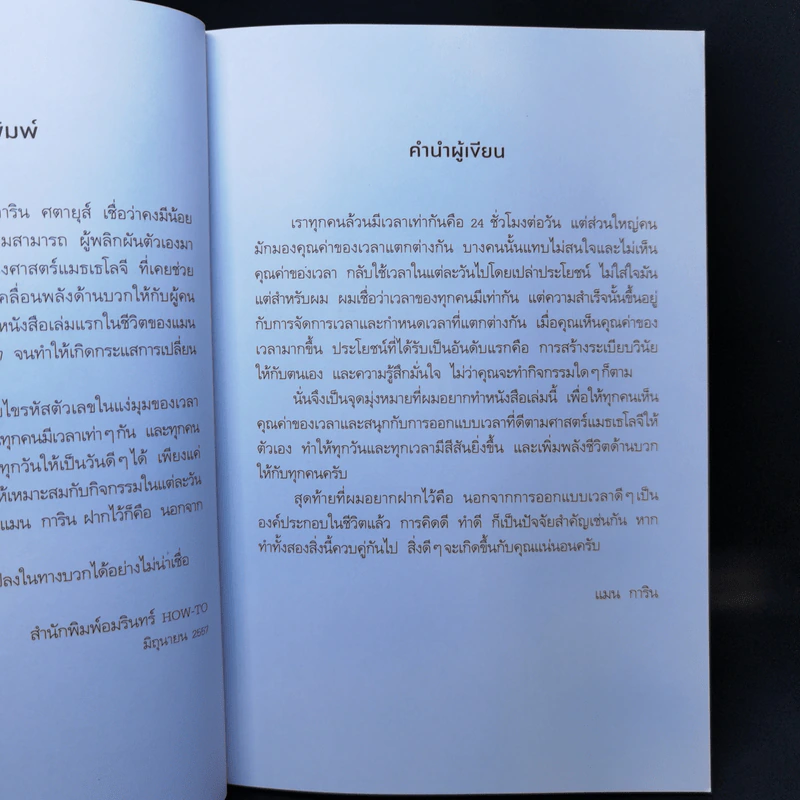 พิมพ์
การิน ศตายุส์ เชื่อว่าคงมีน้อย
มสามารถ ผู้พลิกผันตัวเองมา
งศาสตร์แมธเธโลจี ที่เคยช่วย
คลื่อนพลังด้านบวกให้กับผู้คน
หนังสือเล่มแรกในชีวิตของแมน
จนทำให้เกิดกระแสการเปลี่ยน
ไขรหัสตัวเลขในแง่มุมของเวลา
ทุกคนมีเวลาเท่าๆกัน และทุกคน
ทุกวันให้เป็นวันดีๆได้ เพียงแค่
ให้เหมาะสมกับกิจกรรมในแต่ละวัน
แมน การิน ฝากไว้ก็คือ นอกจาก
ปลงในทางบวกได้อย่างไม่น่าเชื่อ
สำนักพิมพ์อมรินทร์ HOW-TO
มิถุนายน 2557
คำนำผู้เขียน
เราทุกคนล้วนมีเวลาเท่ากันคือ 24 ชั่วโมงต่อวัน แต่ส่วนใหญ่คน
มักมองคุณค่าของเวลาแตกต่างกัน บางคนนั้นแทบไม่สนใจและไม่เห็น
คุณค่าของเวลา กลับใช้เวลาในแต่ละวันไปโดยเปล่าประโยชน์ ไม่ใส่ใจมัน
แต่สำหรับผม ผมเชื่อว่าเวลาของทุกคนมีเท่ากัน แต่ความสำเร็จนั้นขึ้นอยู่
กับการจัดการเวลาและกำหนดเวลาที่แตกต่างกัน เมื่อคุณเห็นคุณค่าของ
เวลามากขึ้น ประโยชน์ที่ได้รับเป็นอันดับแรกคือ การสร้างระเบียบวินัย
ให้กับตนเอง และความรู้สึกมั่นใจ ไม่ว่าคุณจะทำกิจกรรมใดๆก็ตาม
นั่นจึงเป็นจุดมุ่งหมายที่ผมอยากทำหนังสือเล่มนี้ เพื่อให้ทุกคนเห็น
คุณค่าของเวลาและสนุกกับการออกแบบเวลาที่ดีตามศาสตร์แมธเธโลจีให้
ตัวเอง ทำให้ทุกวันและทุกเวลามีสีสันยิ่งขึ้น และเพิ่มพลังชีวิตด้านบวก
ให้กับทุกคนครับ
สุดท้ายที่ผมอยากฝากไว้คือ นอกจากการออกแบบเวลาดีๆเป็น
องค์ประกอบในชีวิตแล้ว การคิดดี ทำดี ก็เป็นปัจจัยสำคัญเช่นกัน หาก
ทำทั้งสองสิ่งนี้ควบคู่กันไป สิ่งดีๆจะเกิดขึ้นกับคุณแน่นอนครับ
แมน การิน